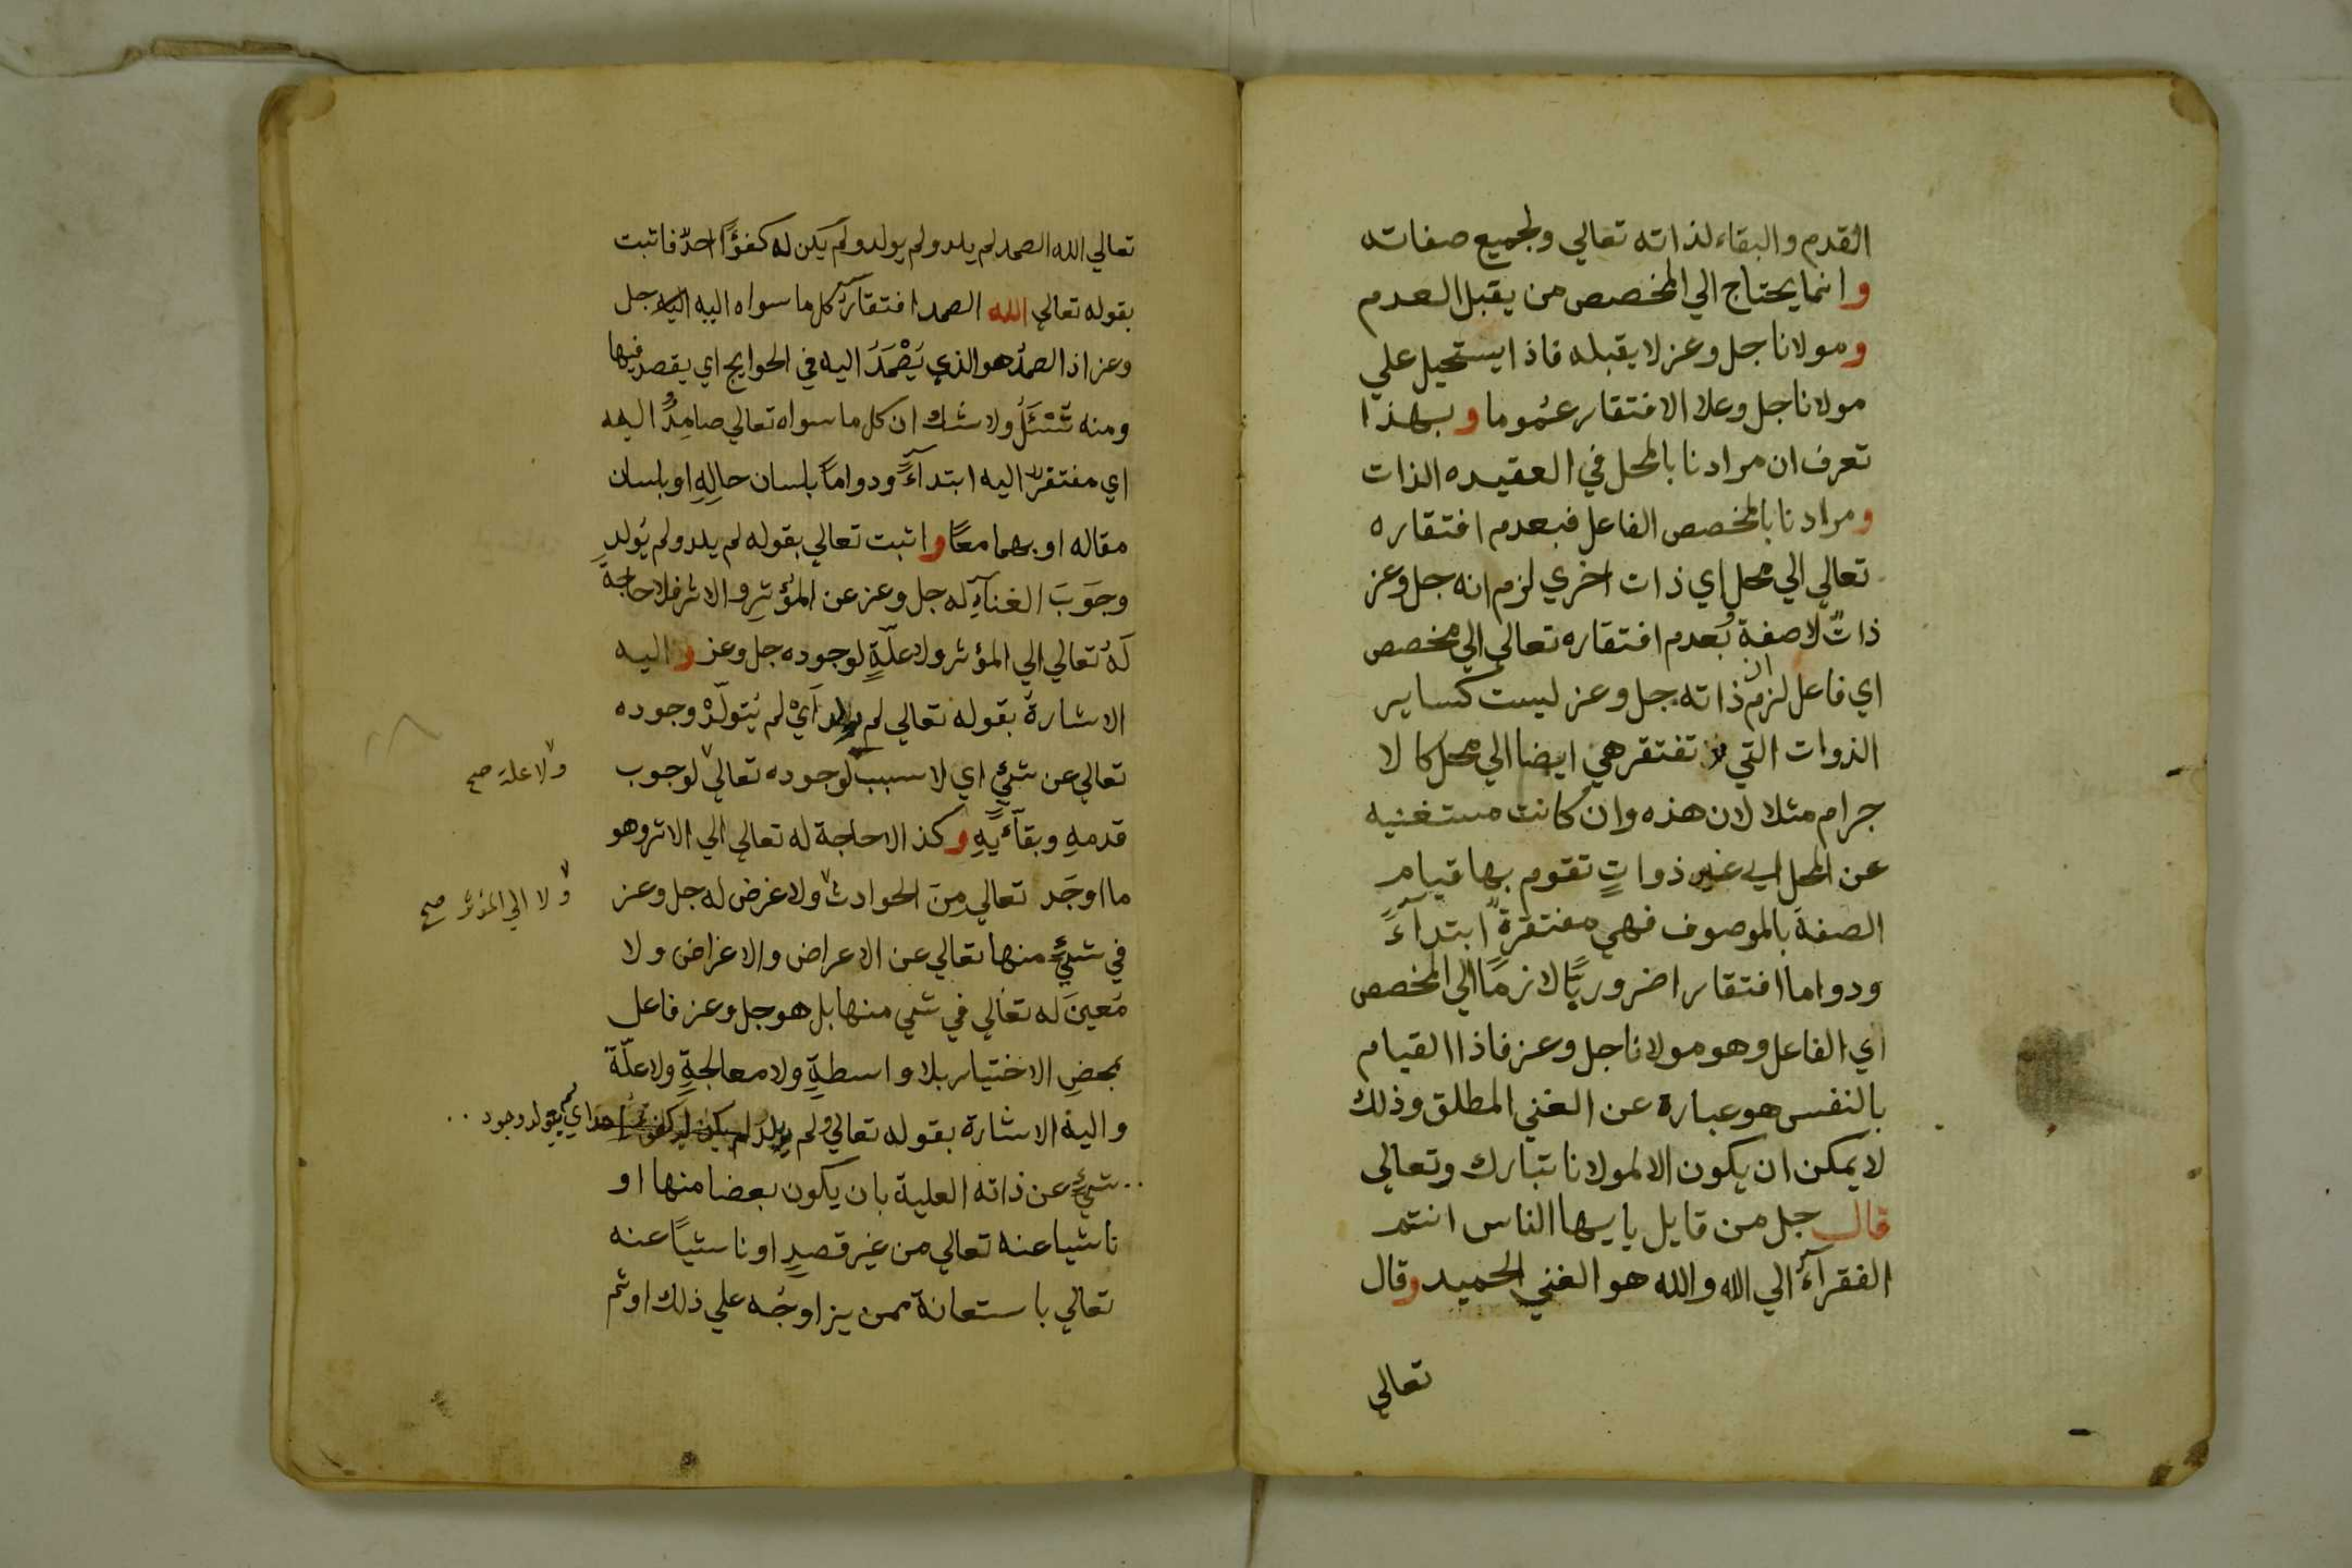 القدم والبقاء لذاته تعالي ولجميع صفاته
وانما يحتاج الي المخصص من يقبل العدم
ومولانا جل وعز لا يقبله فاذا يستحيل علي
مولانا جل وعلا الافتقار عموما وبهذا
تعرف ان مرادنا بالمحل في العقيده الذات
ومرادنا بالمخصص الفاعل فبعدم افتقاره
تعالي الي محل اي ذات اخري لزم انه جل وعز
ذاتٌ لا صفة وبعدم افتقاره تعالي الي مخصص
اي فاعل لزم ان ذاته جل وعز ليست كساير
الذوات التي تفتقر هي ايضا الي محل كالا
جرام مثلا لان هذه وان كانت مستغنيه
عن المحل اي غير ذواتٍ تقوم بها قيام
الصفة بالموصوف فهي مفتقرةً ابتدآءً
ودواما افتقارا ضروريًّا لازمًا الي المخصص
اي الفاعل وهو مولانا جل وعز فاذا القيام
بالنفس هو عبارة عن الغني المطلق وذلك
لا يمكن ان يكون الا لمولانا تبارك وتعالي
قال جل من قايل يايها الناس انتم
الفقرآءُ الي الله والله هو الغني الحميد وقال
تعالي
تعالي الله الصمد لم يلد ولم يولد ولم يكن له كفؤًا احدٌ فاثبت
بقوله تعالي الله الصمد افتقار كل ما سواه اليه جل
وعز اذ الصمدُ هو الذي يُصْمَدُ اليه في الحوايج اي يقصد فيها
ومنه تُسْئَلُ ولا شك ان كل ما سواه تعالي صامِدٌ اليه
اي مفتقر اليه ابتدآءً ودواماً بلسان حالِهِ او بلسان
مقاله او بهما معًا واثبت تعالي بقوله لم يلد ولم يُولد
وجَوَبَ الغنآءِ له جل وعز عن المؤثرِ والاثر فلا حاجة
لَهُ تعالي الي المؤثر ولا علّةٍ لوجوده جل وعز واليه
الاشارة بقوله تعالي لم يولد اَيْ لم يُتولّدْ وجوده
تعالي عن شيءٍ اي لا سبب لوجوده تعالي لوجوب
ولا علة صح
قدمهِ وبقآئِهِ وكذا لا حاجة له تعالي الي الاثر وهو
ما اوجَد تعالي مِنَ الحوادث ولا غرض له جل وعز
ولا الي المؤثر صح
في شيءٍ منها تعالي عن الاعراض والاغراض ولا
مُعينَ له تعالي في شي منها بل هو جل وعز فاعل
بمحضِ الاختيار بلا واسطةٍ ولا معالجةٍ ولا علّة
واليه الاشارة بقوله تعالي ولم يلد لم يكن له كفوًا احد اي لم يتولد وجود
شيءٍ عن ذاته العلية بان يكون بعضا منها او
ناشيا عنه تعالي من غير قصدٍ او ناشيًا عنه
تعالي باستعانة ممن يزاوجُه علي ذلك او ثم